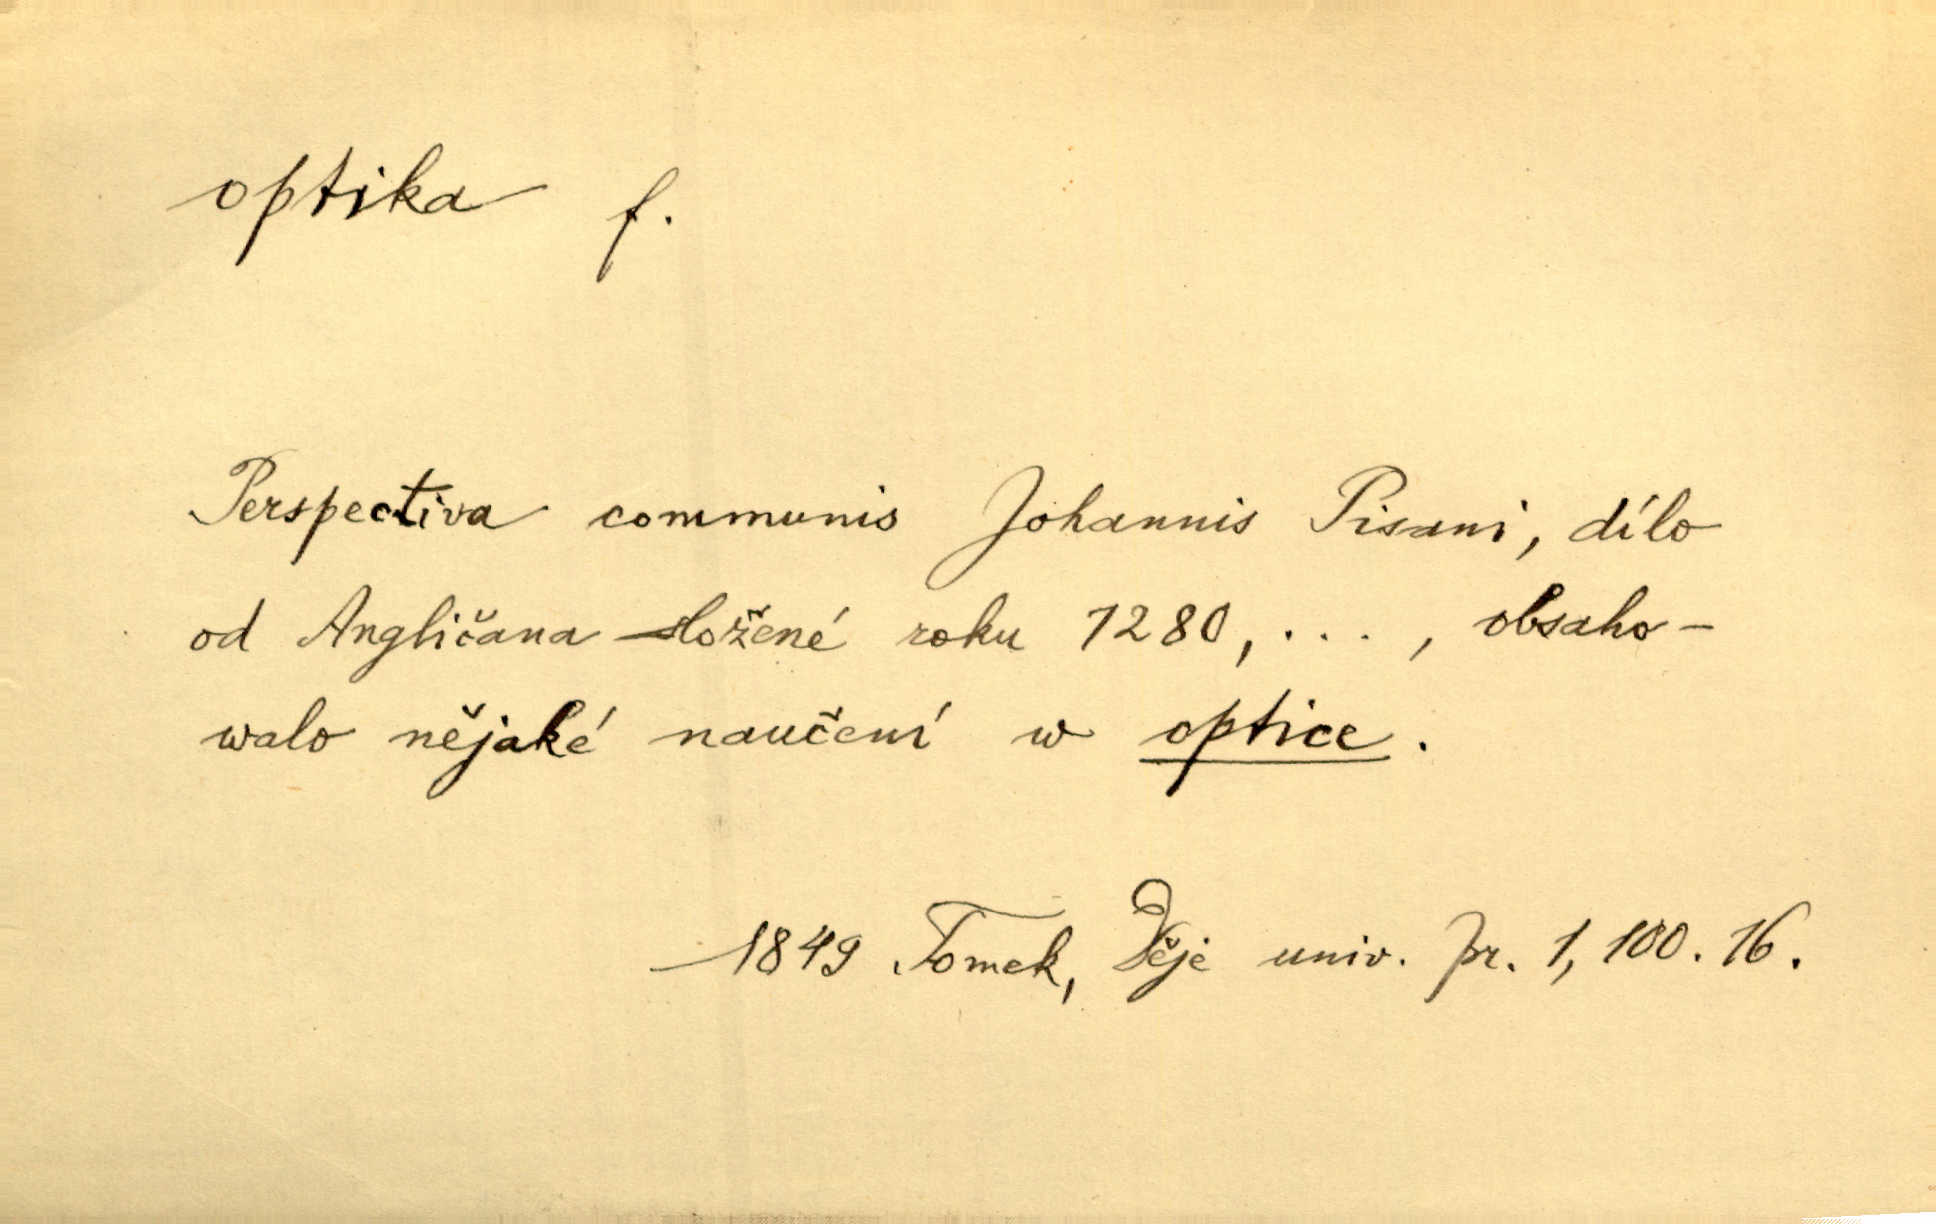 optika f.
Perspectiva communis Johannis Pisani, dílo
od Angličana složené roku 1280, . . . , obsaho-
walo nějaké naučení w optice.
1849 Tomek, Děje univ. pr. 1, 100. 16.